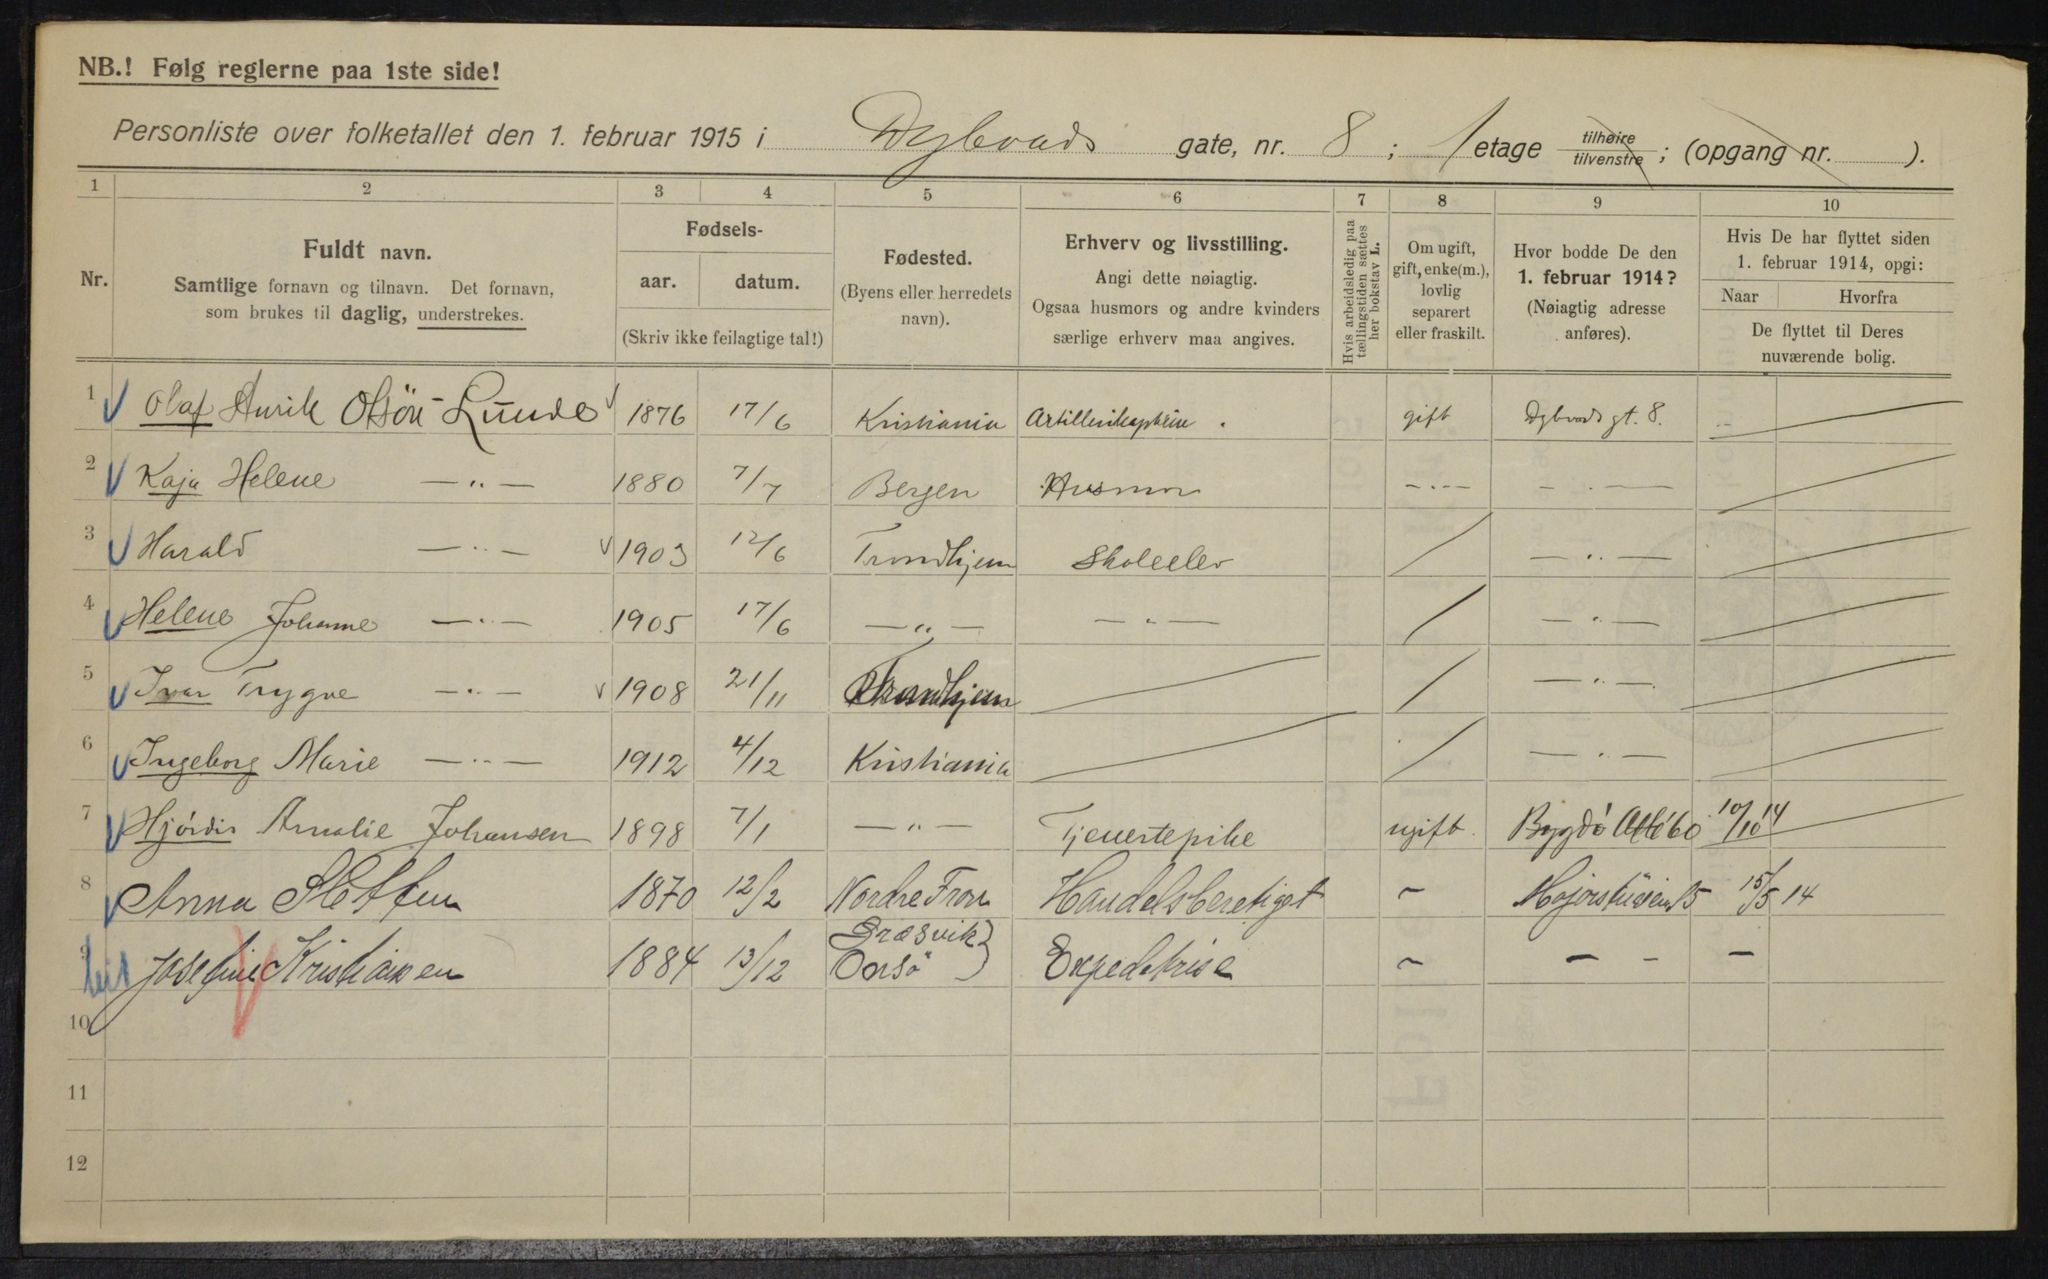 NB.! Følg reglerne paa 1ste side!
Personliste over folketallet den 1. februar 1915 i Dybvads gate, nr. 8 ; 1 etage tilhøire / tilvenstre ; (opgang nr. ).
1 2 3 4 5 6 7 8 9 10
Nr.
Fuldt navn.
Samtlige fornavn og tilnavn. Det fornavn,
som brukes til daglig, understrekes.
Fødsels-
aar. datum.
(Skriv ikke feilagtige tal!)
Fødested.
(Byens eller herredets
navn).
Erhverv og livsstilling.
Angi dette nøiagtig.
Ogsaa husmors og andre kvinders
særlige erhverv maa angives.
Hvis arbeidsledig paa
tællingstiden sættes
her bokstav L.
Om ugift,
gift, enke(m.),
lovlig
separert
eller fraskilt.
Hvor bodde De den
1. februar 1914?
(Nøiagtig adresse
anføres).
Hvis De har flyttet siden
1. februar 1914, opgi:
Naar Hvorfra
De flyttet til Deres
nuværende bolig.
1 Olaf Henrik Olsön Lunde 1876 17/6 Kristiania gift Dybvads gt. 8.
2 Kaja Helene —„— 1880 7/7 Bergen Husmor —„— —„—
3 Harald —„— 1903 12/6 Trondhjem Skoleelev —„—
4 Helene Johanne —„— 1905 17/6 —„— —„— —„—
5 Ivar Trygve —„— 1908 21/11 Trondhjem —„—
6 Ingeborg Marie —„— 1912 4/12 Kristiania —„—
7 Hjördis Amalie Johansen 1898 7/1 —„— Tjenestepike ugift. Bygdö Allé 60 10/10 14
8 Anna Sletten 1870 12/2 Nordre Fron Handelsberetiget ~ 15/5 14
9 Josefine Kristiansen 1884 13/12 Græsvik } Onsö Expeditrise ~ — — —
10
11
12